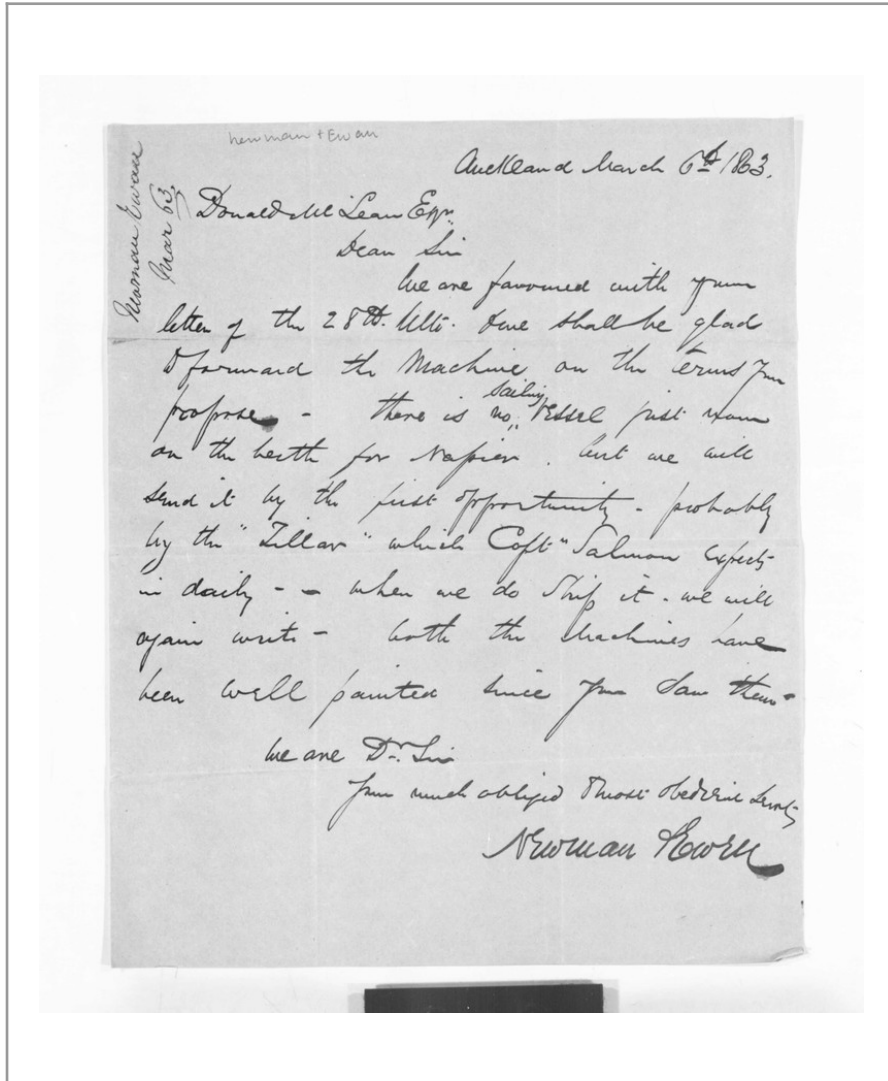 Newman + Ewan
Newman Ewan
Mar 63.
Auckland March 6th 1863.
Donald McLean Esqr.
Dear Sir
We are favoured with your
letter of the 28th. Ulto. & we shall be glad
to forward the Machine on the terms you
propose - there is no sailing vessel just now
on the berth for Napier. but we will
send it by the first opportunity - probably
by the "Zillah" which Captn Salmon expects
in daily - - when we do ship it - we will
again write - both the Machines have
been well painted since you saw them -
We are Dr. Sir
Your much obliged & most obedient Servts
Newman & Ewen